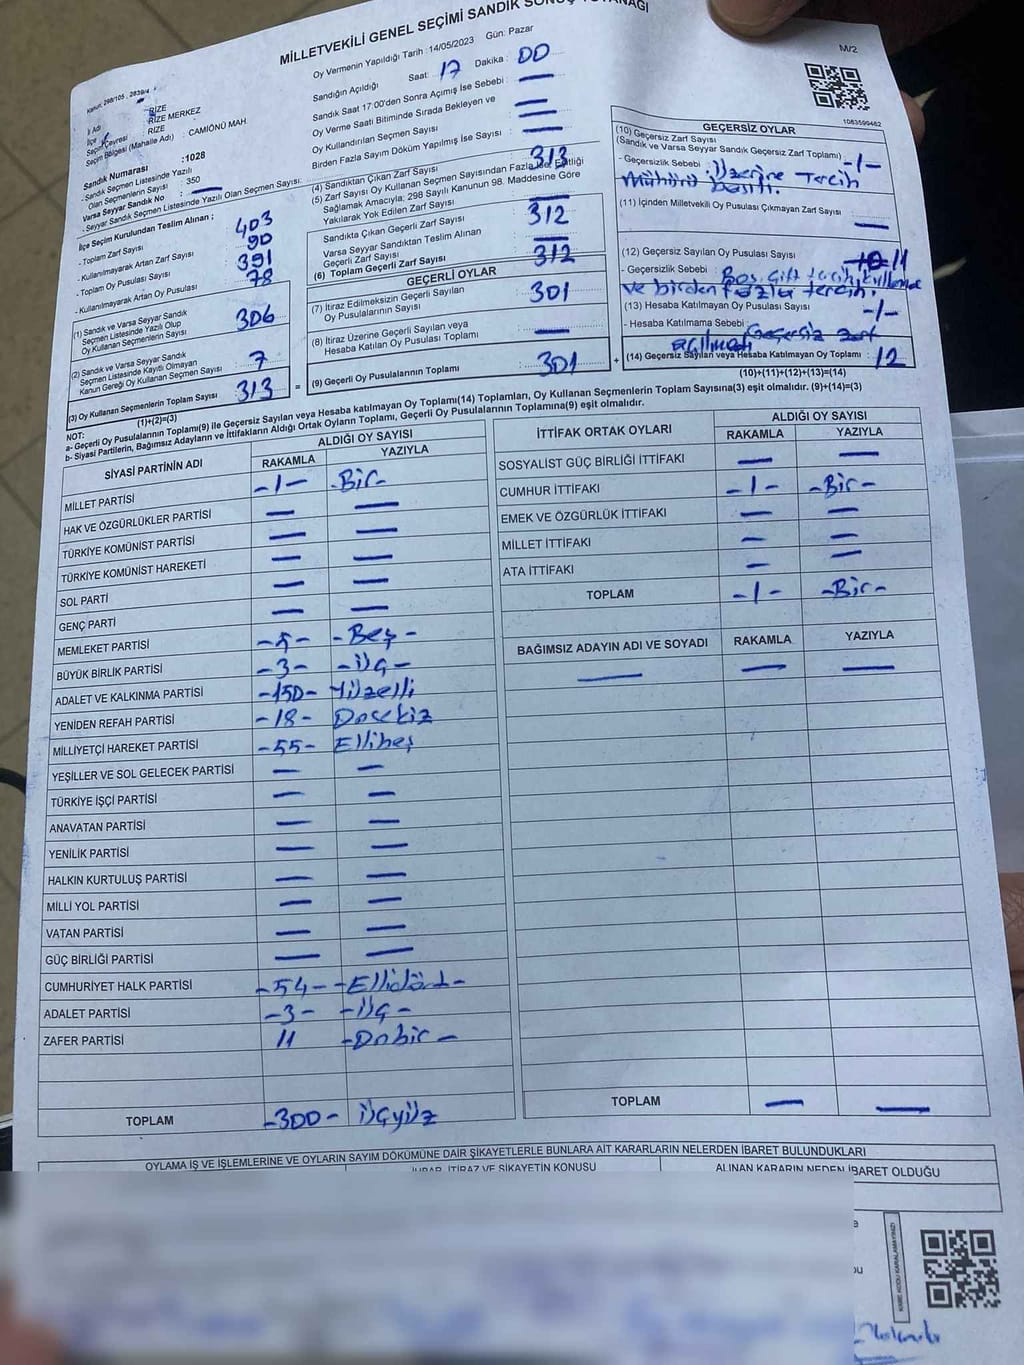 MİLLETVEKİLİ GENEL SEÇİMİ SANDIK SONUÇ TUTANAĞI
M/2
Oy Vermenin Yapıldığı Tarih : 14/05/2023 Gün: Pazar
Sandığın Açıldığı Saat: 17 Dakika : 00
Sandık Saat 17:00'den Sonra Açımış İse Sebebi : —
Oy Verme Saati Bitiminde Sırada Bekleyen ve
Oy Kullandırılan Seçmen Sayısı —
Birden Fazla Sayım Döküm Yapılmış İse Sayısı : —
Kanun: 298/105 , 2839/4
İl Adı : RİZE
İlçe : RİZE MERKEZ
Seçim Çevresi : RİZE
Seçim Bölgesi (Mahalle Adı) : CAMİÖNÜ MAH.
Sandık Numarası :1028
Sandık Seçmen Listesinde Yazılı
Olan Seçmenlerin Sayısı : 350
Varsa Seyyar Sandık No —
Seyyar Sandık Seçmen Listesinde Yazılı Olan Seçmen Sayısı:
İlçe Seçim Kurulundan Teslim Alınan ;
- Toplam Zarf Sayısı 403
- Kullanılmayarak Artan Zarf Sayısı 90
- Toplam Oy Pusulası Sayısı 391
- Kullanılmayarak Artan Oy Pusulası 78
(1) Sandık ve Varsa Seyyar Sandık
Seçmen Listesinde Yazılı Olup
Oy Kullanan Seçmenlerin Sayısı 306
(2) Sandık ve Varsa Seyyar Sandık
Seçmen Listesinde Kayıtlı Olmayan
Kanun Gereği Oy Kullanan Seçmen Sayısı 7
(3) Oy Kullanan Seçmenlerin Toplam Sayısı 313 =
(1)+(2)=(3)
(4) Sandıktan Çıkan Zarf Sayısı 313
(5) Zarf Sayısı Oy Kullanan Seçmen Sayısından Fazla İse, Eşitliği
Sağlamak Amacıyla; 298 Sayılı Kanunun 98. Maddesine Göre
Yakılarak Yok Edilen Zarf Sayısı —
Sandıkta Çıkan Geçerli Zarf Sayısı 312
Varsa Seyyar Sandıktan Teslim Alınan
Geçerli Zarf Sayısı —
(6) Toplam Geçerli Zarf Sayısı 312
GEÇERLİ OYLAR
(7) İtiraz Edilmeksizin Geçerli Sayılan
Oy Pusulalarının Sayısı 301
(8) İtiraz Üzerine Geçerli Sayılan veya
Hesaba Katılan Oy Pusulası Toplamı —
(9) Geçerli Oy Pusulalarının Toplamı 301 +
1083599462
GEÇERSİZ OYLAR
(10) Geçersiz Zarf Sayısı
(Sandık ve Varsa Seyyar Sandık Geçersiz Zarf Toplamı) -1-
- Geçersizlik Sebebi : Üzerine Tercih
Mühürü basılı.
(11) İçinden Milletvekili Oy Pusulası Çıkmayan Zarf Sayısı
—
(12) Geçersiz Sayılan Oy Pusulası Sayısı 11
- Geçersizlik Sebebi : Boş, Çift tercih kullanma
ve birden fazla tercih.
(13) Hesaba Katılmayan Oy Pusulası Sayısı -1-
- Hesaba Katılmama Sebebi : Geçersiz Zarf
açılmadı
(14) Geçersiz Sayılan veya Hesaba Katılmayan Oy Toplamı : 12
(10)+(11)+(12)+(13)=(14)
NOT:
a- Geçerli Oy Pusulalarının Toplamı(9) ile Geçersiz Sayılan veya Hesaba katılmayan Oy Toplamı(14) Toplamları, Oy Kullanan Seçmenlerin Toplam Sayısına(3) eşit olmalıdır. (9)+(14)=(3)
b- Siyasi Partilerin, Bağımsız Adayların ve İttifakların Aldığı Ortak Oyların Toplamı, Geçerli Oy Pusulalarının Toplamına(9) eşit olmalıdır.
SİYASİ PARTİNİN ADI ALDIĞI OY SAYISI
RAKAMLA YAZIYLA
MİLLET PARTİSİ -1- -Bir-
HAK VE ÖZGÜRLÜKLER PARTİSİ — —
TÜRKİYE KOMÜNİST PARTİSİ — —
TÜRKİYE KOMÜNİST HAREKETİ — —
SOL PARTİ — —
GENÇ PARTİ — —
MEMLEKET PARTİSİ -5- -Beş-
BÜYÜK BİRLİK PARTİSİ -3- -Üç-
ADALET VE KALKINMA PARTİSİ -150- Yüzelli
YENİDEN REFAH PARTİSİ -18- Onsekiz
MİLLİYETÇİ HAREKET PARTİSİ -55- Ellibeş
YEŞİLLER VE SOL GELECEK PARTİSİ — —
TÜRKİYE İŞÇİ PARTİSİ — —
ANAVATAN PARTİSİ — —
YENİLİK PARTİSİ — —
HALKIN KURTULUŞ PARTİSİ — —
MİLLİ YOL PARTİSİ — —
VATAN PARTİSİ — —
GÜÇ BİRLİĞİ PARTİSİ — —
CUMHURİYET HALK PARTİSİ -54- -Ellidört-
ADALET PARTİSİ -3- -Üç-
ZAFER PARTİSİ 11 -Onbir-
TOPLAM -300- Üçyüz
İTTİFAK ORTAK OYLARI ALDIĞI OY SAYISI
RAKAMLA YAZIYLA
SOSYALİST GÜÇ BİRLİĞİ İTTİFAKI — —
CUMHUR İTTİFAKI -1- -Bir-
EMEK VE ÖZGÜRLÜK İTTİFAKI — —
MİLLET İTTİFAKI — —
ATA İTTİFAKI — —
TOPLAM -1- -Bir-
BAĞIMSIZ ADAYIN ADI VE SOYADI RAKAMLA YAZIYLA
— — —
TOPLAM — —
OYLAMA İŞ VE İŞLEMLERİNE VE OYLARIN SAYIM DÖKÜMÜNE DAİR ŞİKAYETLERLE BUNLARA AİT KARARLARIN NELERDEN İBARET BULUNDUKLARI
İHBAR, İTİRAZ VE ŞİKAYETİN KONUSU ALINAN KARARIN NEDEN İBARET OLDUĞU
KARE KODU KARALAMAYINIZ!